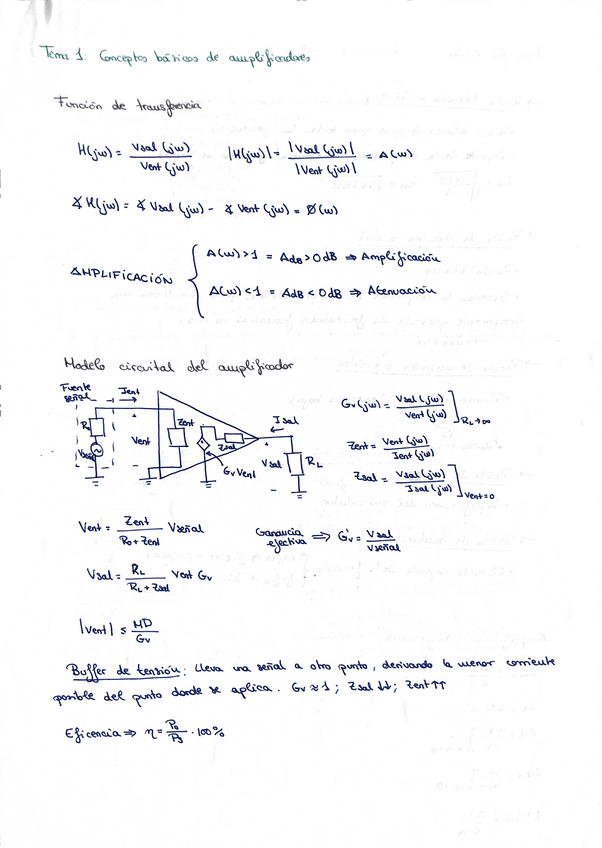 Tema 1: Conceptos básicos de amplificadores
Función de transferencia
H(jω) = Vsal (jω) / Vent (jω)    |H(jω)| = |Vsal (jω)| / |Vent (jω)| = A(ω)
∡ H(jω) = ∡ Vsal (jω) - ∡ Vent (jω) = Ø(ω)
AMPLIFICACIÓN { A(ω) > 1 = AdB > 0 dB ⇒ Amplificación
A(ω) < 1 = AdB < 0 dB ⇒ Atenuación
Modelo circuital del amplificador
Fuente señal Ient
Ro Vseñal + Vent - Zent Zsal Gv Vent Isal + Vsal - RL
Gv(jω) = Vsal (jω) / Vent (jω) ] RL→∞
Zent = Vent (jω) / Ient (jω)
Zsal = Vsal (jω) / Isal (jω) ] Vent=0
Vent = Zent / (Ro + Zent) Vseñal    Ganancia efectiva ⇒ G'v = Vsal / Vseñal
Vsal = RL / (RL + Zsal) Vent Gv
|Vent| ≤ MD / Gv
Buffer de tensión: Lleva una señal a otro punto, derivando la menor corriente
posible del punto donde se aplica. Gv ≈ 1; Zsal ↓↓; Zent ↑↑
Eficencia ⇒ η = Po / Ps · 100%